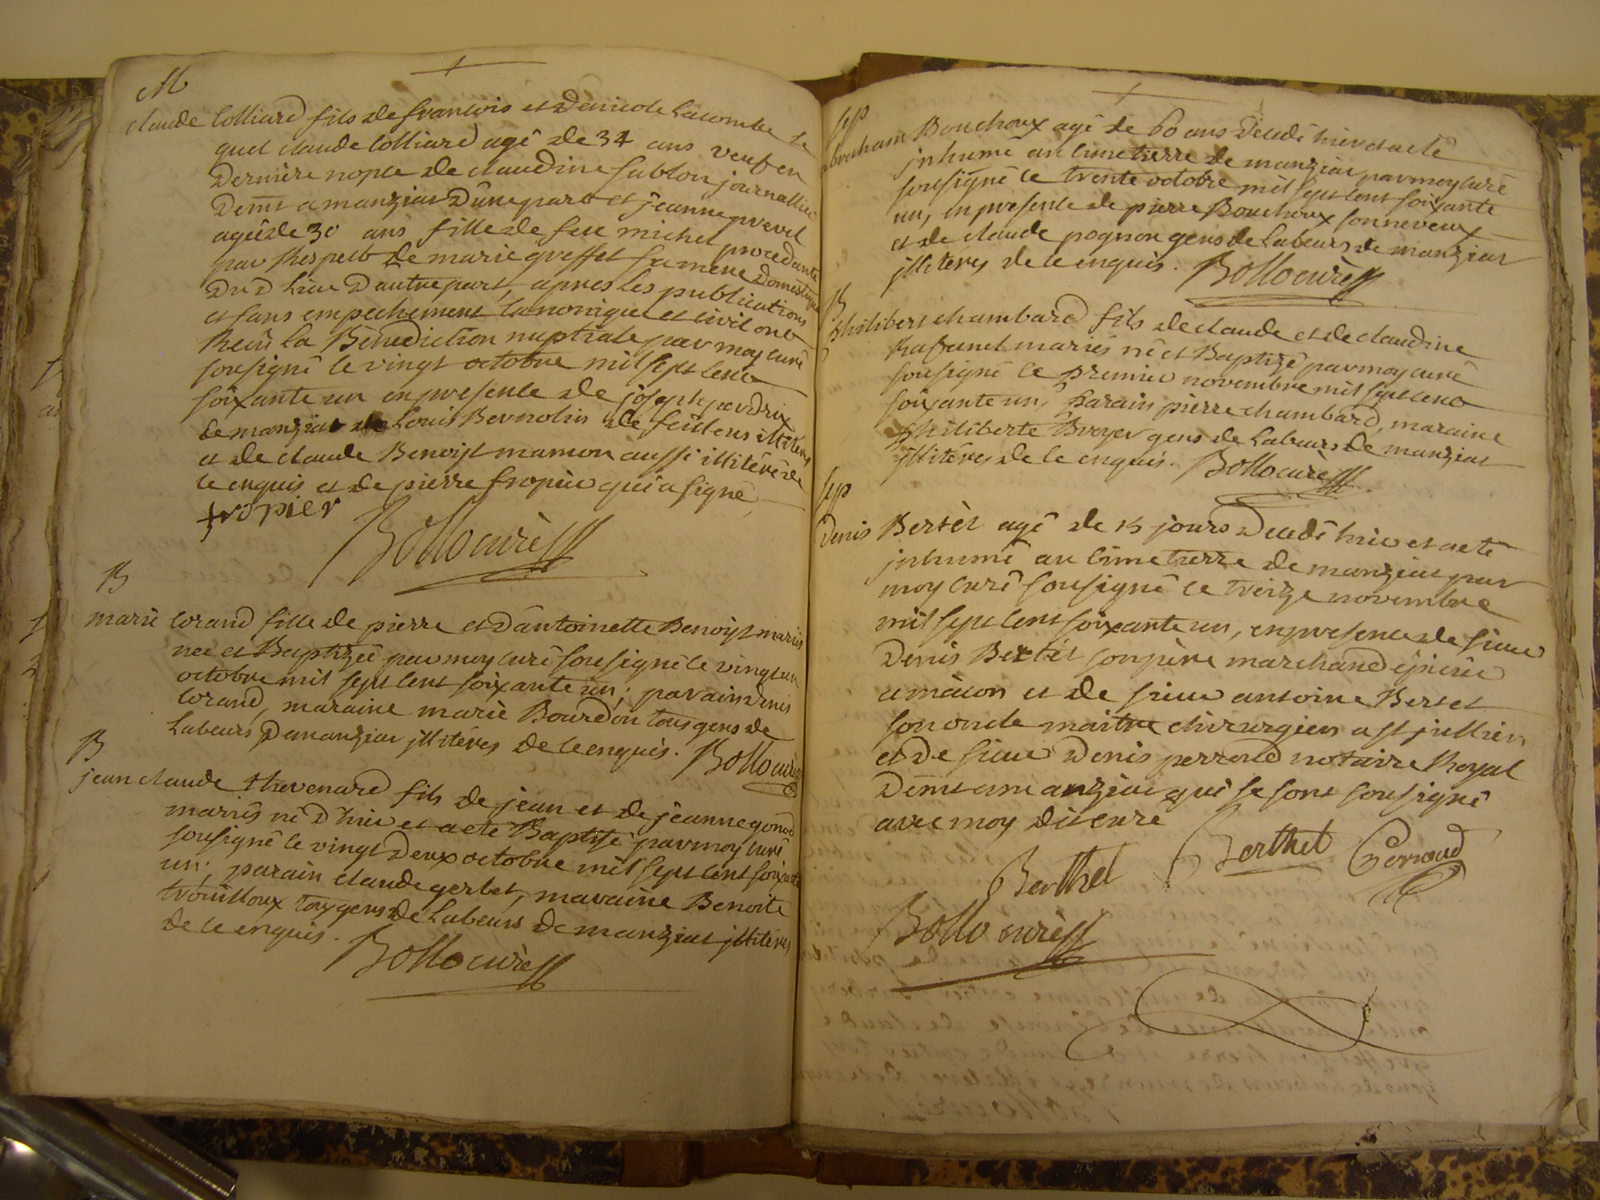 M
claude Colliard fils de francois et de nicole Lacombe le
quel claude Colliard agé de 34 ans veuf en
derniere nopce de claudine Sablon journallier
demt a manziat d'une part et jeanne prevel
ageé de 30 ans fille de feu michel procedante
par Respect de marie greffet sa mere domestique
dud lieu d'autre part, apres les publications
et sans empechement canonique et civil ont
Recû la Benediction nuptiale par moy curé
sousigné le vingt octobre mil sept cent
soixante un en presence de joseph perdrix
de manziat de Louis Bernolin de feillens illiteres
et de claude Benoist mamon aussi illitéré de
ce enquis et de pierre fropier qui a signé
fropier
Bollo curé
B
marie Corand fille de pierre et d'antoinette Benoist mariés
neé et Baptizée par moy curé sousigné le vingt un
octobre mil sept cent soixante un; parain denis
Corand, maraine marie Bourdon tous gens de
Labeurs de manziat illitéres de ce enquis. Bollo curé
B
jean claude thevenard fils de jean et de jeanne gonod
mariés né d'hier et a eté Baptisé par moy curé
sousigné le vingt deux octobre mil sept cent soixante
un; parain claude gerbet, maraine Benoite
trouilloux tous gens de Labeurs de manziat illiteres
de ce enquis. Bollo curé
sep
abraham Bouchoux agé de 60 ans decedé hier et a eté
inhumé au cimetierre de manziat par moy curé
sousigné le trente octobre mil sept cent soixante
un, en presence de pierre Bouchoux son neveux
et de claude pognon gens de Labeurs de manziat
illiteres de ce enquis. Bollo curé
B
philibert chambard fils de claude et de claudine
Rafanel mariés né et Baptizé par moy curé
sousigné le premier novembre mil sept cent
soixante un, parain pierre chambard, maraine
philiberte Broyer gens de Labeurs de manziat
illiteres de ce enquis. Bollo curé
sep
denis Bertet agé de 15 jours decedé hier et a eté
inhumé au cimetierre de manziat par
moy curé sousigné le treize novembre
mil sept cent soixante un, en presence de sieur
denis Bertet son père marchand épicier
a mâcon et de sieur antoine Bertet
son oncle maitre chirurgien a st jullien
et de sieur denis perroud notaire Royal
demt a manziat qui se sont sousigné
avec moy dit curé
Berthet Perroud
Berthet
Bollo curé